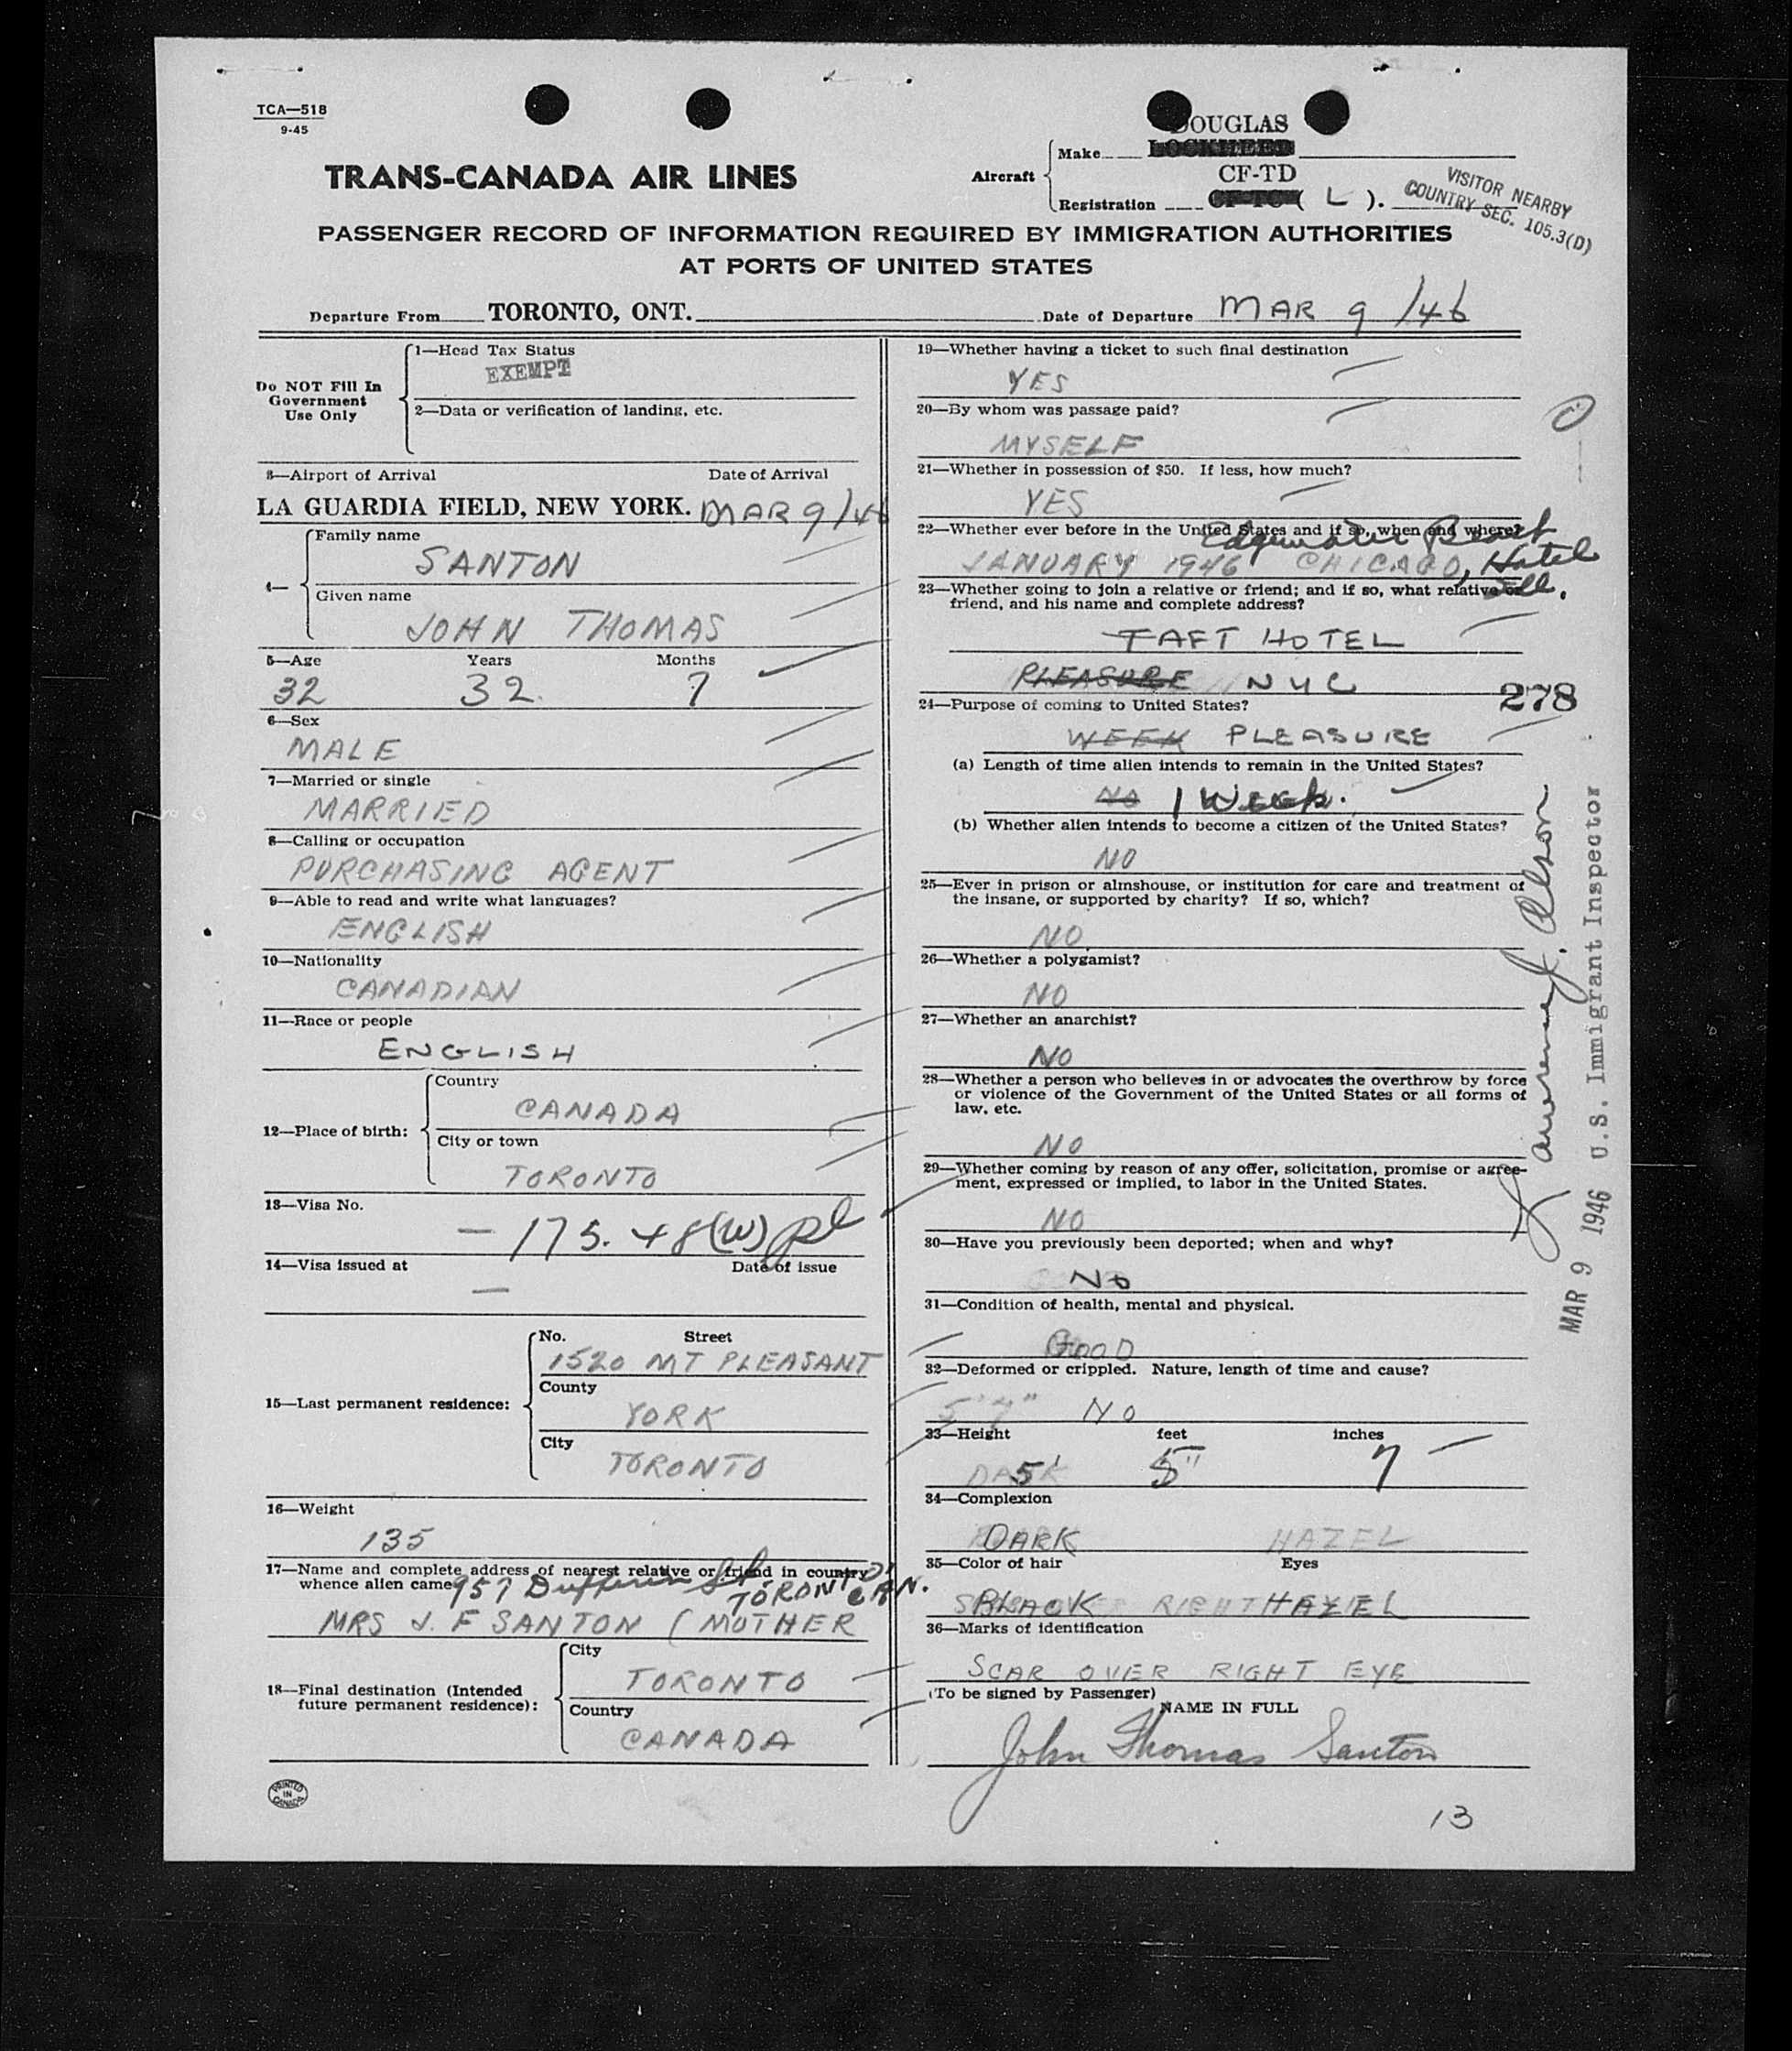 TCA—518
9-45
DOUGLAS
Make
TRANS-CANADA AIR LINES
Aircraft
CF-TD
Registration CF-TC ( L ).
VISITOR NEARBY
COUNTRY SEC. 105.3(D)
PASSENGER RECORD OF INFORMATION REQUIRED BY IMMIGRATION AUTHORITIES
AT PORTS OF UNITED STATES
Departure From TORONTO, ONT. Date of Departure MAR 9 /46
Do NOT Fill In
Government
Use Only
1—Head Tax Status
EXEMPT
2—Data or verification of landing, etc.
3—Airport of Arrival Date of Arrival
LA GUARDIA FIELD, NEW YORK. MAR 9/46
4—
Family name
SANTON
Given name
JOHN THOMAS
5—Age Years Months
32 32 7
6—Sex
MALE
7—Married or single
MARRIED
8—Calling or occupation
PURCHASING AGENT
9—Able to read and write what languages?
ENGLISH
10—Nationality
CANADIAN
11—Race or people
ENGLISH
12—Place of birth:
Country
CANADA
City or town
TORONTO
13—Visa No.
— 175. 48(W)
14—Visa issued at Date of issue
—
15—Last permanent residence:
No. Street
1520 MT PLEASANT
County
YORK
City
TORONTO
16—Weight
135
17—Name and complete address of nearest relative or friend in country
whence alien came
957 Dufferin St.
TORONTO, CAN.
MRS J. F SANTON ( MOTHER
18—Final destination (Intended
future permanent residence):
City
TORONTO
Country
CANADA
PRINTED
IN
CANADA
19—Whether having a ticket to such final destination
YES
20—By whom was passage paid?
MYSELF
21—Whether in possession of $50. If less, how much?
YES
22—Whether ever before in the United States and if so, when and where?
Edgewater Beach
JANUARY 1946 CHICAGO, Hotel
Ill.
23—Whether going to join a relative or friend; and if so, what relative or
friend, and his name and complete address?
TAFT HOTEL
PLEASURE NYC
278
24—Purpose of coming to United States?
WEEK PLEASURE
(a) Length of time alien intends to remain in the United States?
NO 1 WEEK.
(b) Whether alien intends to become a citizen of the United States?
NO
25—Ever in prison or almshouse, or institution for care and treatment of
the insane, or supported by charity? If so, which?
NO
26—Whether a polygamist?
NO
27—Whether an anarchist?
NO
28—Whether a person who believes in or advocates the overthrow by force
or violence of the Government of the United States or all forms of
law, etc.
NO
29—Whether coming by reason of any offer, solicitation, promise or agree-
ment, expressed or implied, to labor in the United States.
NO
30—Have you previously been deported; when and why?
NO
31—Condition of health, mental and physical.
GOOD
32—Deformed or crippled. Nature, length of time and cause?
5' 7" NO
33—Height feet inches
5' 5" 7
34—Complexion
DARK HAZEL
35—Color of hair Eyes
BLACK HAZEL
36—Marks of identification
SCAR OVER RIGHT EYE
(To be signed by Passenger)
NAME IN FULL
John Thomas Santon
13
Lawrence J. Olson
MAR 9 1946 U.S. Immigrant Inspector